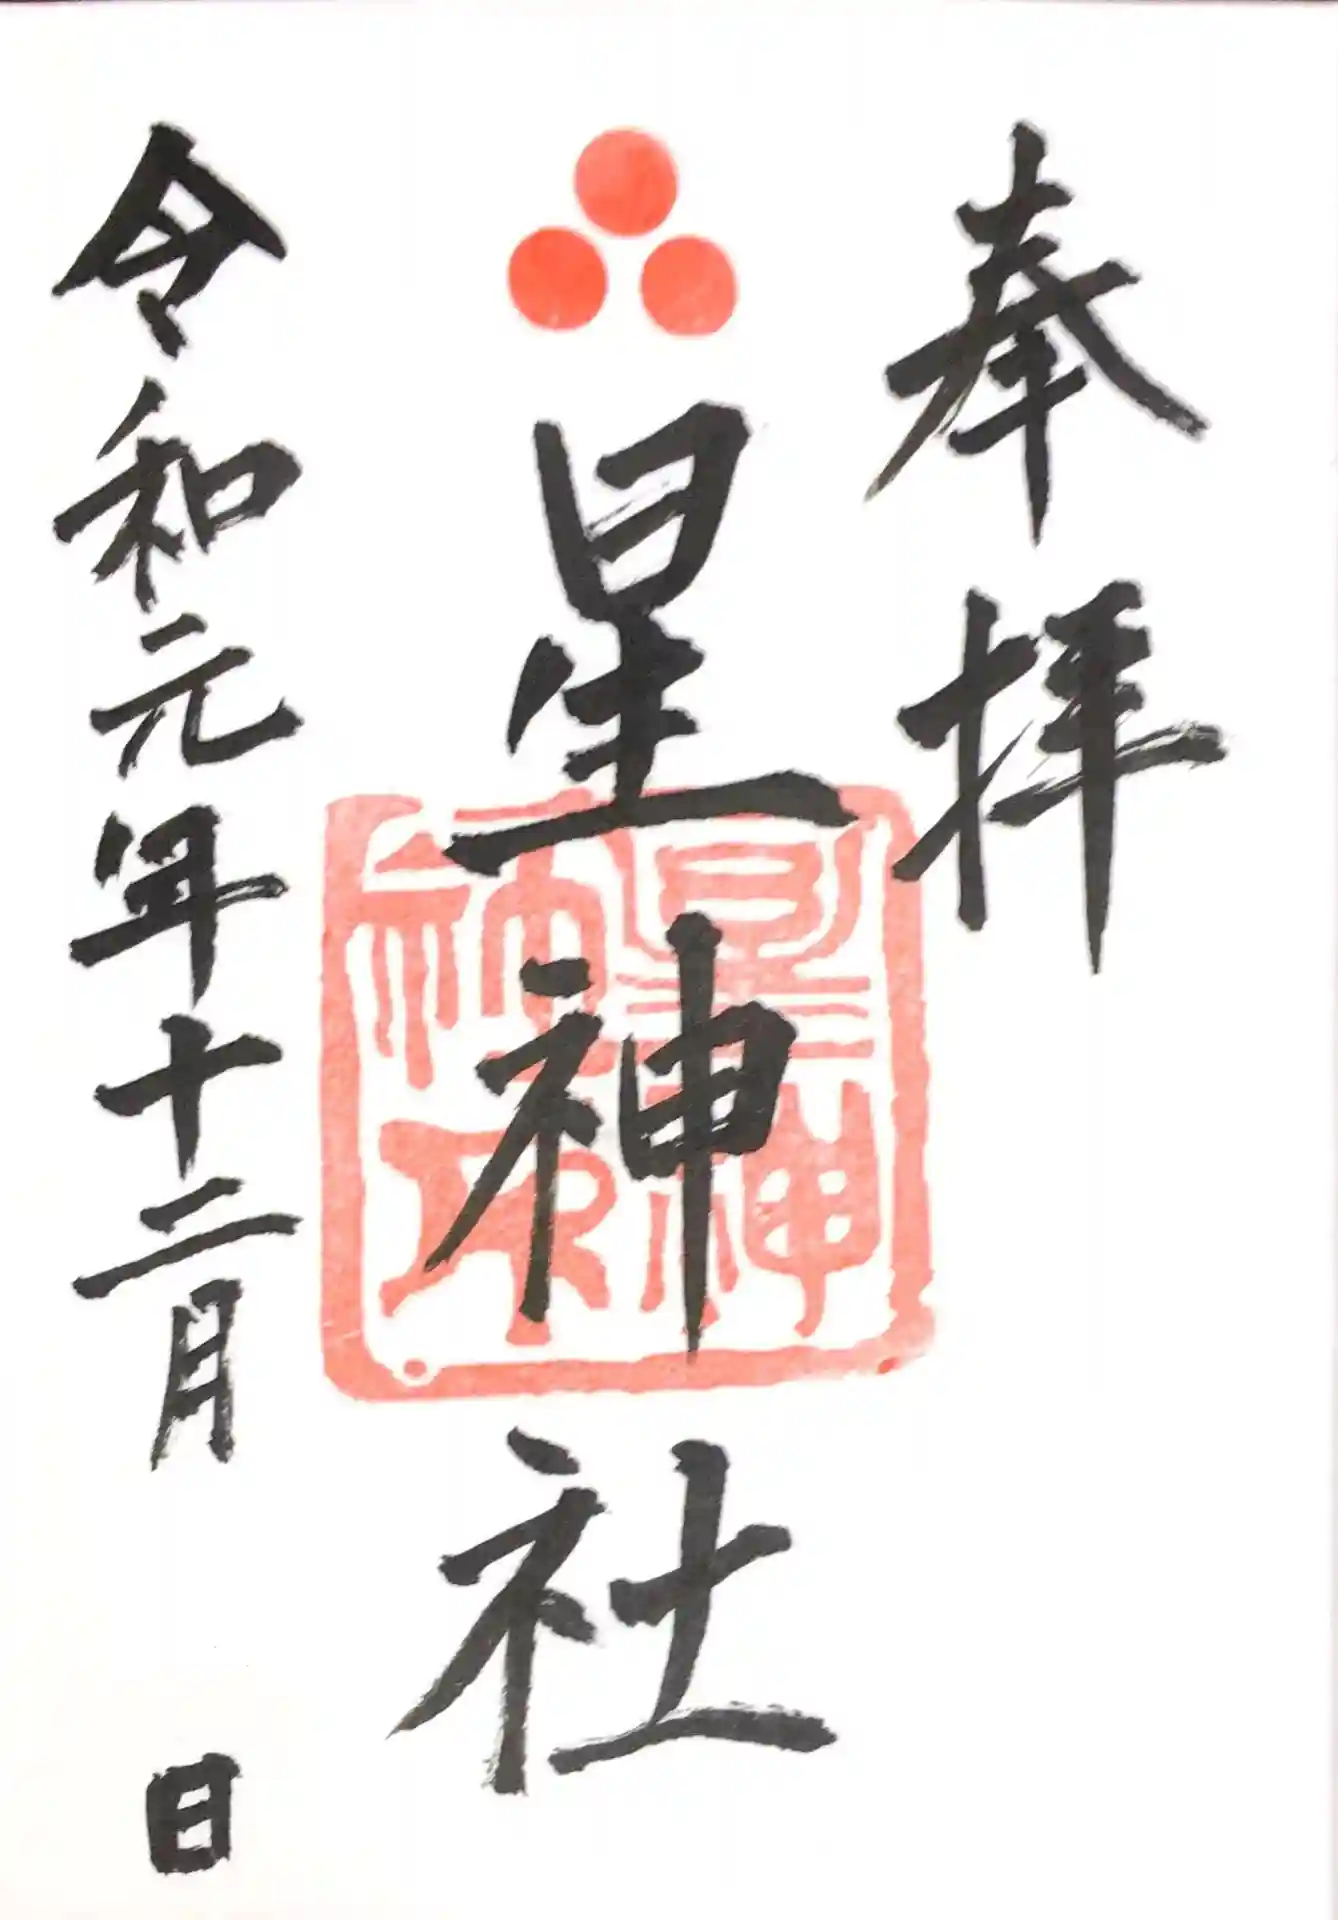 奉拝
星神社
星神社印
令和元年十二月 日